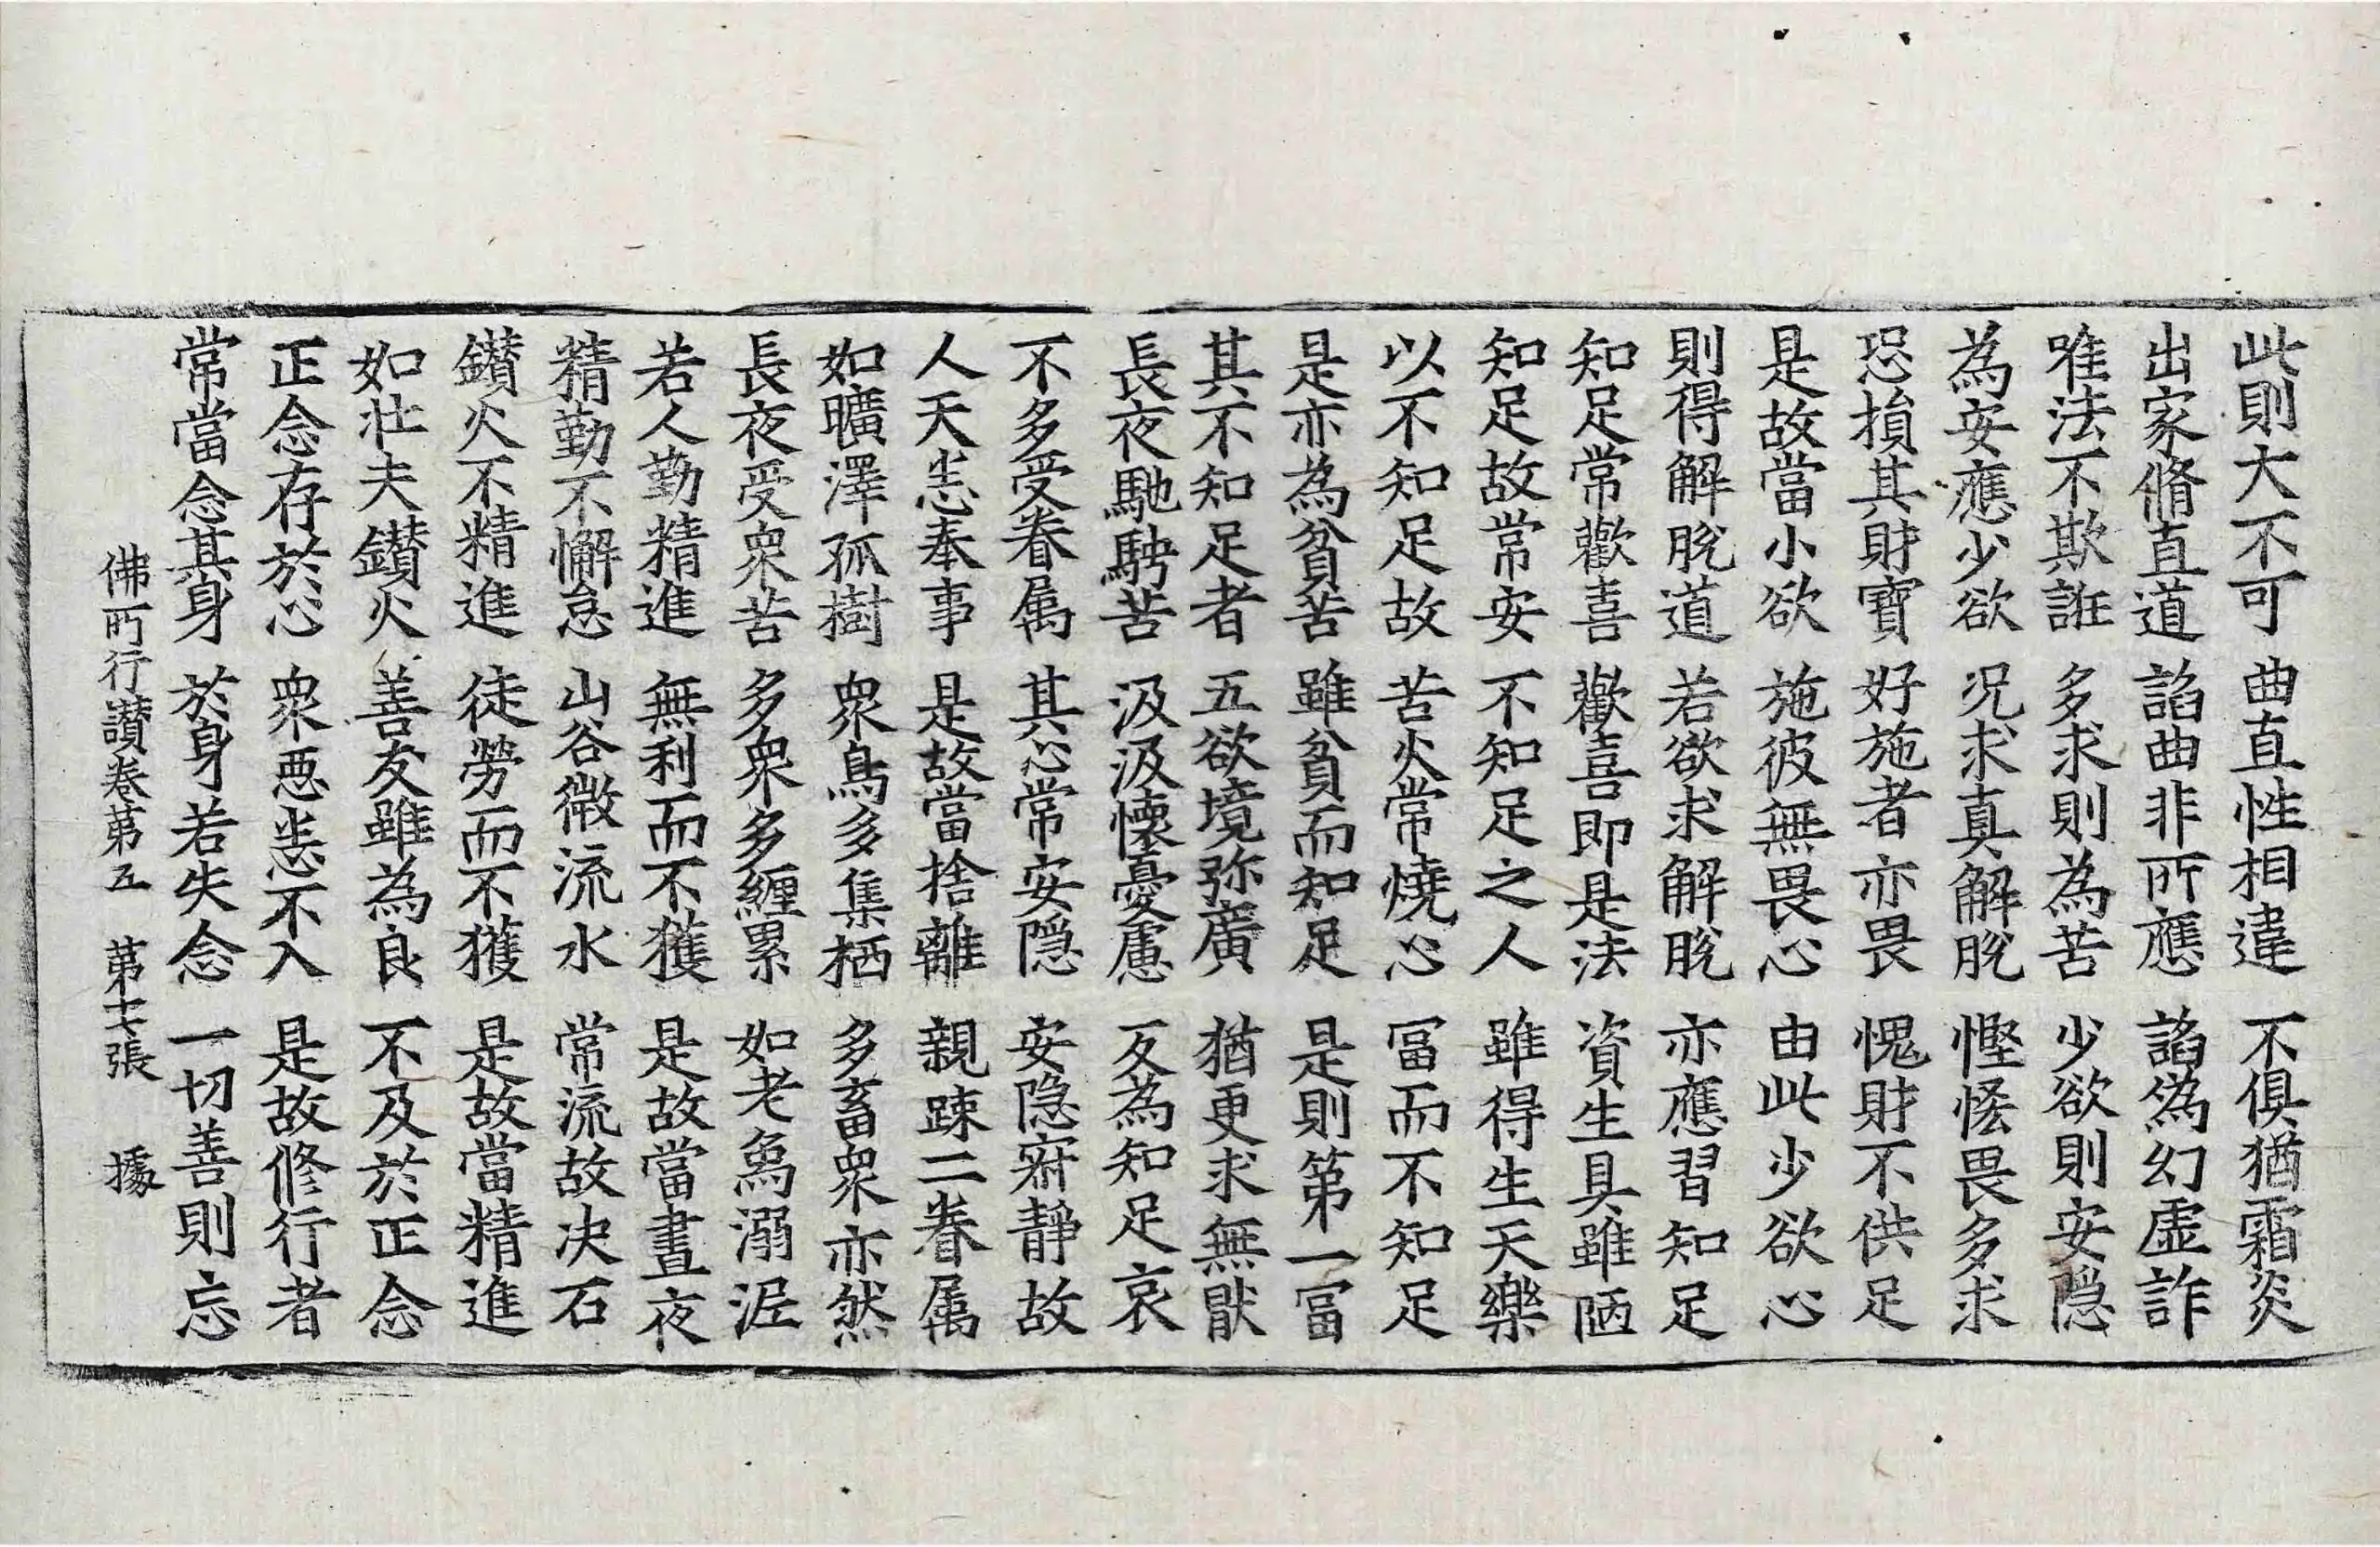 此則大不可　曲直性相違　不俱猶霜炎
出家脩直道　諂曲非所應　諂為幻虛詐
唯法不欺誑　多求則為苦　少欲則安隱
為安應少欲　况求真解脫　慳悋畏多求
恐損其財寶　好施者亦畏　愧財不供足
是故當小欲　施彼無畏心　由此少欲心
則得解脫道　若欲求解脫　亦應習知足
知足常歡喜　歡喜即是法　資生具雖陋
知足故常安　不知足之人　雖得生天樂
以不知足故　苦火常燒心　冨而不知足
是亦為貧苦　雖貧而知足　是則第一冨
其不知足者　五欲境弥廣　猶更求無猒
長夜馳騁苦　汲汲懷憂慮　反為知足哀
不多受眷属　其心常安隱　安隱寂靜故
人天悉奉事　是故當捨離　親踈二眷属
如曠澤孤樹　衆鳥多集栖　多畜衆亦然
長夜受衆苦　多衆多纒累　如老象溺泥
若人勤精進　無利而不獲　是故當晝夜
精勤不懈怠　山谷微流水　常流故决石
鑚火不精進　徒勞而不獲　是故當精進
如壮夫鑚火　善友雖為良　不及於正念
正念存於心　衆惡悉不入　是故修行者
常當念其身　於身若失念　一切善則忘
佛所行讃卷第五　第十七張　據